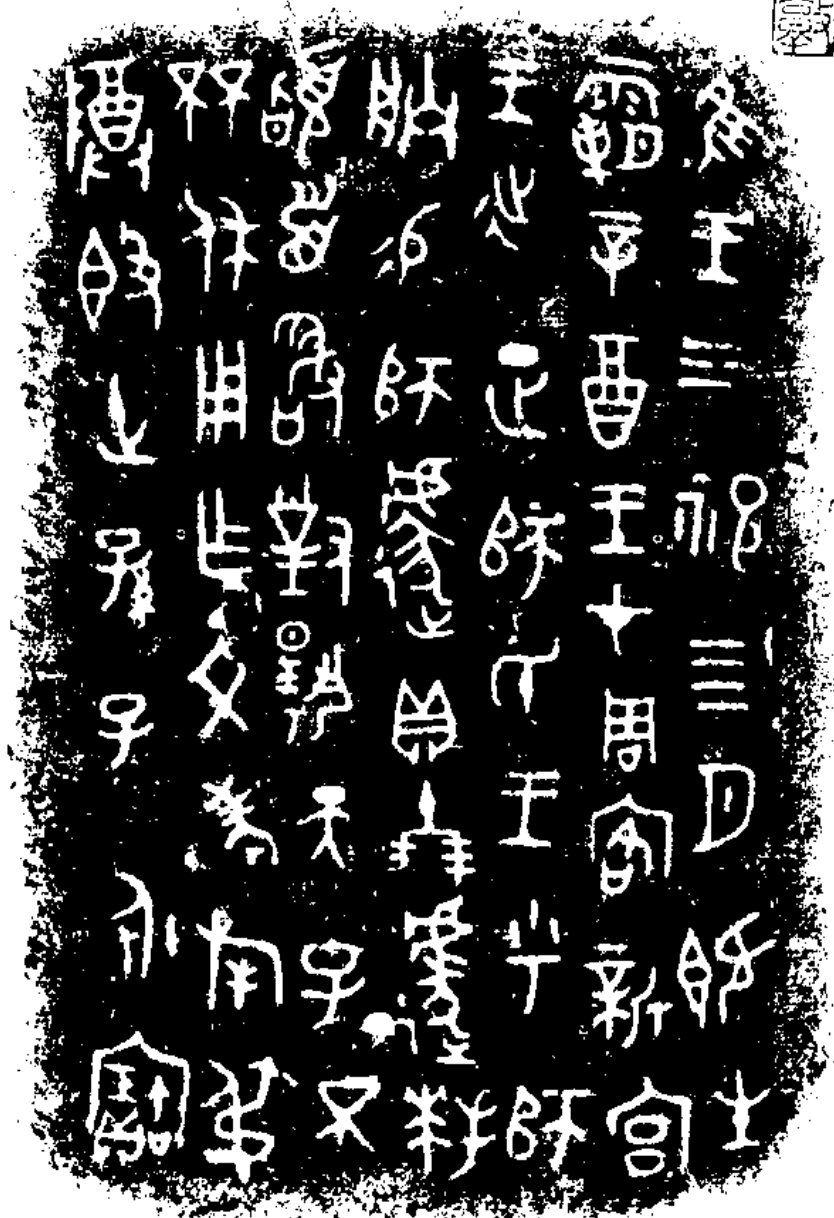 隹王三祀四月既生
霸辛酉王才周客新宮
王征正師氏王乎師
朕易師遽貝十朋遽拜
𩒨首敢對揚天子不
𠀠休用乍文考旄弔
尊𣪘世孫子永寶